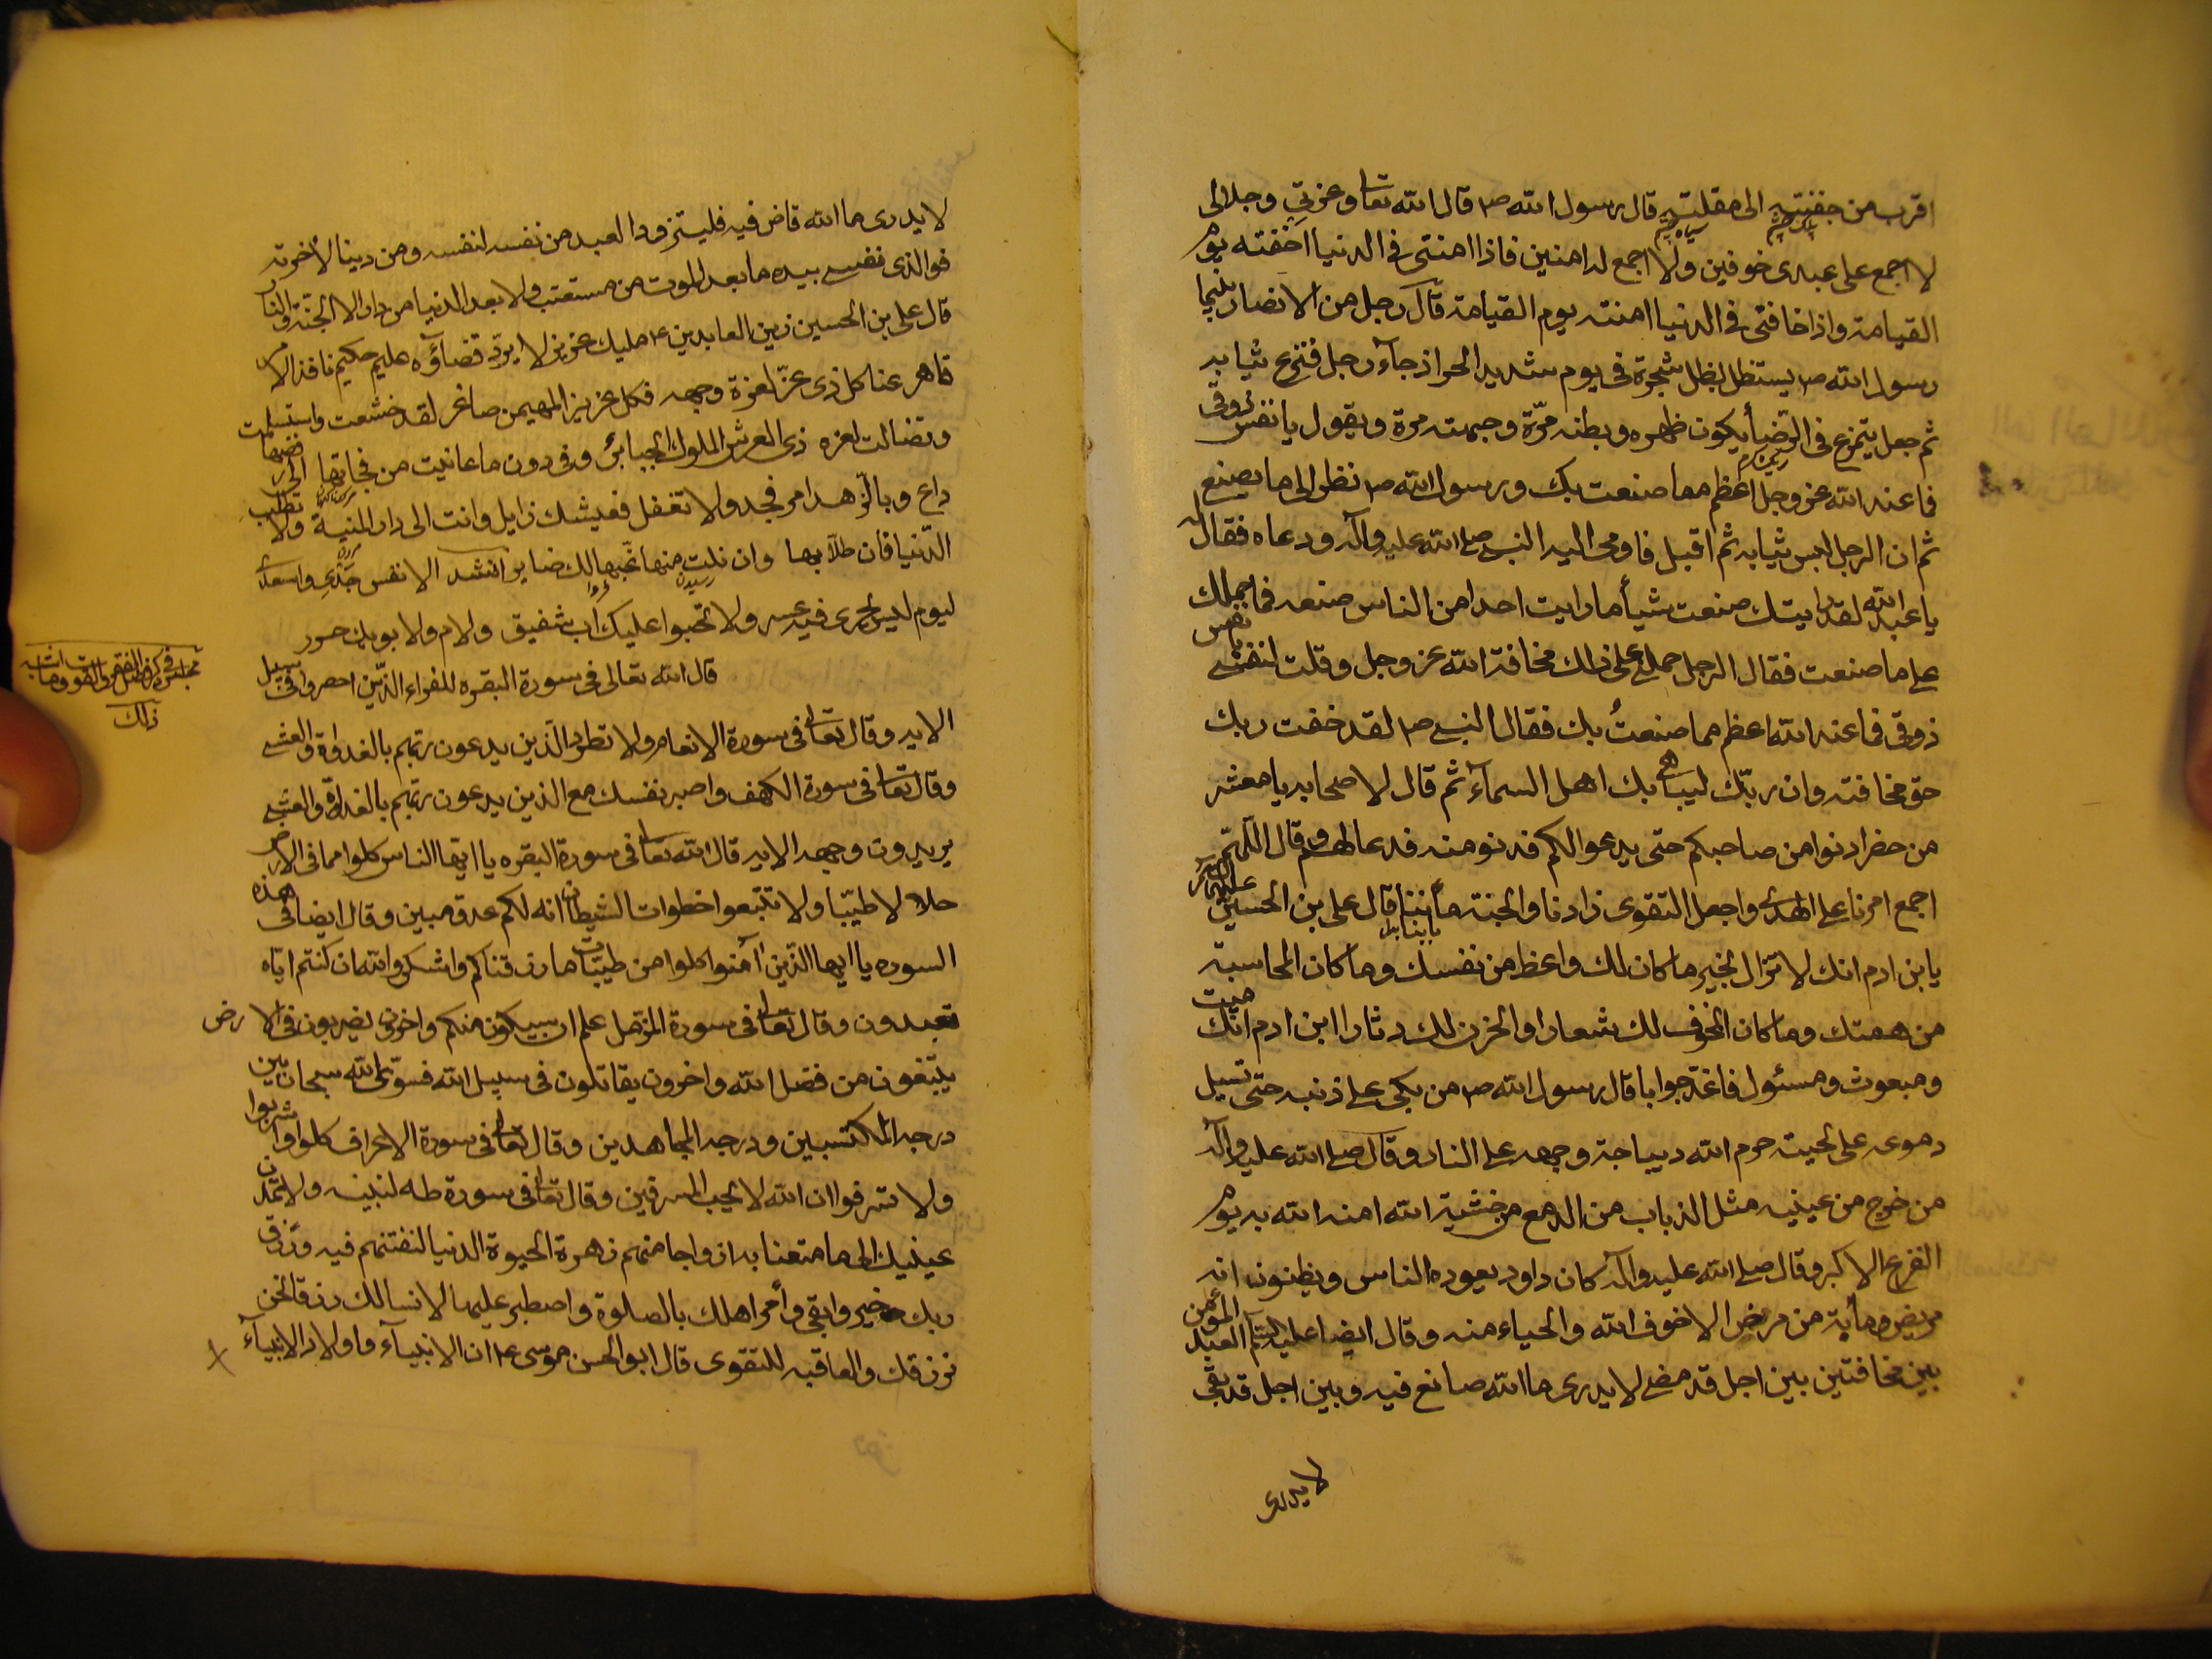 اقرب من جفنتيه الى مقلتيه قال رسول الله ص قال الله تعا وعزتي وجلالى
لا اجمع على عبدى خوفين ولا اجمع له امنين فاذا امنتى فى الدنيا اخفته يوم
القيامة واذا خافنى فى الدنيا امنته يوم القيامة قال رجل من الانصار بينما
رسول الله ص يستظل بظل شجرة فى يوم شديد الحر اذ جاء رجل فنزع ثيابه
ثم جعل يتمرغ فى الرمضا يكون ظهره وبطنه مرّة وجبهته مرة ويقول يا نفس ذوقى
فما عند الله عز وجل اعظم مما صنعت بك ورسول الله ص نظر الى ما يصنع
ثم ان الرجل لبس ثيابه ثم اقبل فاومى اليه النبى صلى الله عليه وآله ودعاه فقال له
يا عبد الله لقد رايتك صنعت شيأ ما رايت احدا من الناس صنعه فما حملك
على ما صنعت فقال الرجل حملنى على ذلك مخافة الله عز وجل وقلت لنفسى يا نفس
ذوقى فما عند الله اعظم مما صنعتُ بك فقال النبى ص لقد خفت ربك
حق مخافته وان ربّك ليباهى بك اهل السمآء ثم قال لاصحابه يا معشر
من حضر ادنوا من صاحبكم حتى يدعوا لكم فدنو منه فدعا لهم وقال اللّهم
اجمع امرنا على الهدى واجعل التقوى زادنا والجنة مأبنا قال على بن الحسين عليهما السلام
يابن ادم انك لا تزال بخير ما كان لك واعظ من نفسك وما كان المحاسبة
من همتك وما كان الخوف لك شعارا والحزن لك دثارا ابن ادم انك ميت
ومبعوث ومسئول فاعدّ جوابا قال رسول الله ص من بكى على ذنبه حتى تسيل
دموعى على لحيته حرم الله ديباجة وجهه على النار وقال صلى الله عليه وآله
من خرج من عينيه مثل الذباب من الدمع من خشية الله امنه الله به يوم
الفزع الاكبر وقال صلى الله عليه وآله كان داود يعوده الناس ويظنون انه
مريض وما به من مرض الا خوف الله والحياء منه وقال ايضا عليه السلم العبد المؤمن
بين مخافتين بين اجل قد مضى لا يدرى ما الله صانع فيه وبين اجل قد بقى
لا يدرى
لا يدرى ما الله قاض فيه فليتزود العبد من نفسه لنفسه ومن دينا لأخرته
فوالذى نفسى بيده ما بعد الموت من مستعتب ولا بعد الدنيا من دار الا الجنّة والنار
قال على بن الحسين زين العابدين ع مليك عزيز لا يردّ قضاؤه عليم حكيم نافذ الامر
قاهر عنا كل ذى عزّ لعزة وجهه فكل عزيز للمهيمن صاغر لقد خشعت واستسلمت
وتضالت لعزه ذى العرش الملوك الجبابر وفى دون ما عاينت من فجاتها الى رفضها
داع وبالزّهد امر فجد ولا تغفل فعيشك زايل وانت الى دار المنية ولا تطلب
الدّنيا فان طلابها وان نلت منها غبّها لك ضاير انشد الا نفس جدّى واسعدى
ليوم ليس يجرى فيه عسر ولا تحبوا عليك اب شفيق ولا ام ولا بويك حور
قال الله تعالى فى سورة البقره للفقراء الذّين احصروا فى سبيل
الايه وقال تعا فى سورة الانعام ولا تطرد الّذين يدعون ربّهم بالغداوة والعشى
وقال تعا فى سورة الكهف واصبر نفسك مع الذين يدعون ربّهم بالغداوة والعشى
يريدون وجهه الايه قال الله تعا فى سورة البقره يا ايّها الناس كلوا مما فى الارض
حلالا طيّبا ولا تتبعوا خطوات الشيطان انه لكم عدو مبين وقال ايضا فى هذه
السوره يا ايها الذّين آمنوا كلوا من طيّبات ما رزقناكم واشكروا لله ان كنتم ايّاه
تعبدون وقال تعا فى سورة المزّمل علم ان سيكون منكم واخرون يضربون فى الارض
يبتغون من فضل الله واخرون يقاتلون فى سبيل الله فسوّى الله سبحان بين
درجه المكتسبين ودرجه المجاهدين وقال تعا فى سورة الاعراف كلوا واشربوا
ولا تسرفوا ان الله لا يحب المسرفين وقال تعا فى سورة طه لنبيه ولا تمدّن
عينيك الى ما متعنا به ازواجا منهم زهرة الحيوة الدنيا لنفتنهم فيه ورزق
ربك خير وابقى وأمر اهلك بالصلوة واصطبر عليها لا نسالك رزقا نحن
نرزقك والعاقبه للتقوى قال ابو الحسن موسى ع ان الانبيآء واولاد الانبيآء
ذلك